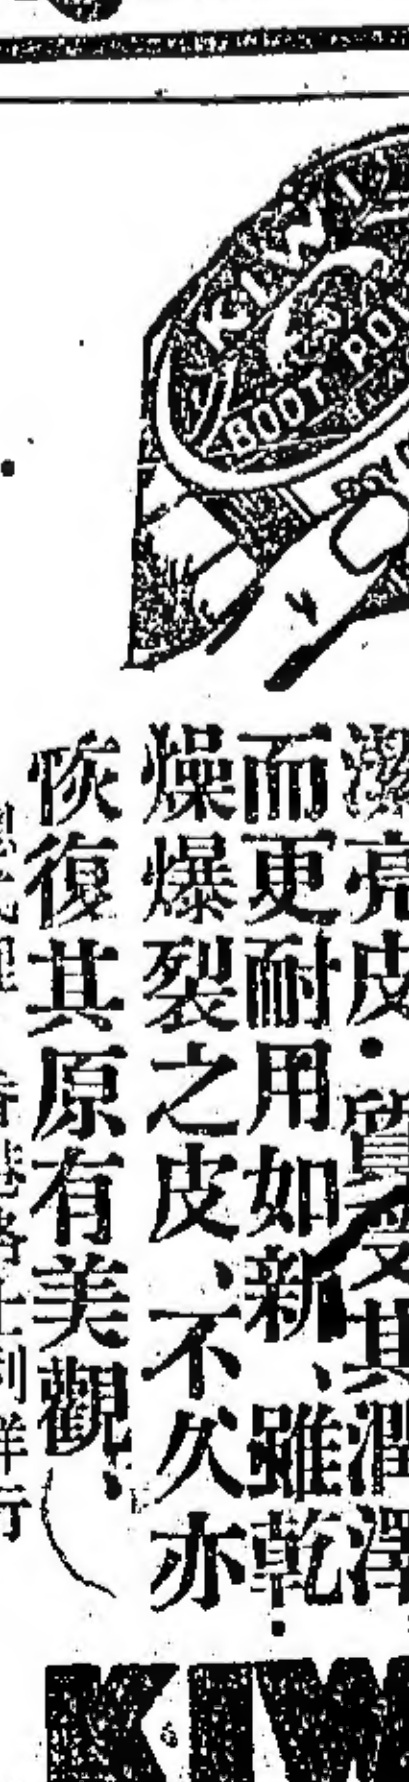 KIWI
BOOT POL
潔亮皮・質受其潤澤
而更耐用如新、雖乾
燥爆裂之皮、不久亦
恢復其原有美觀、
KIW